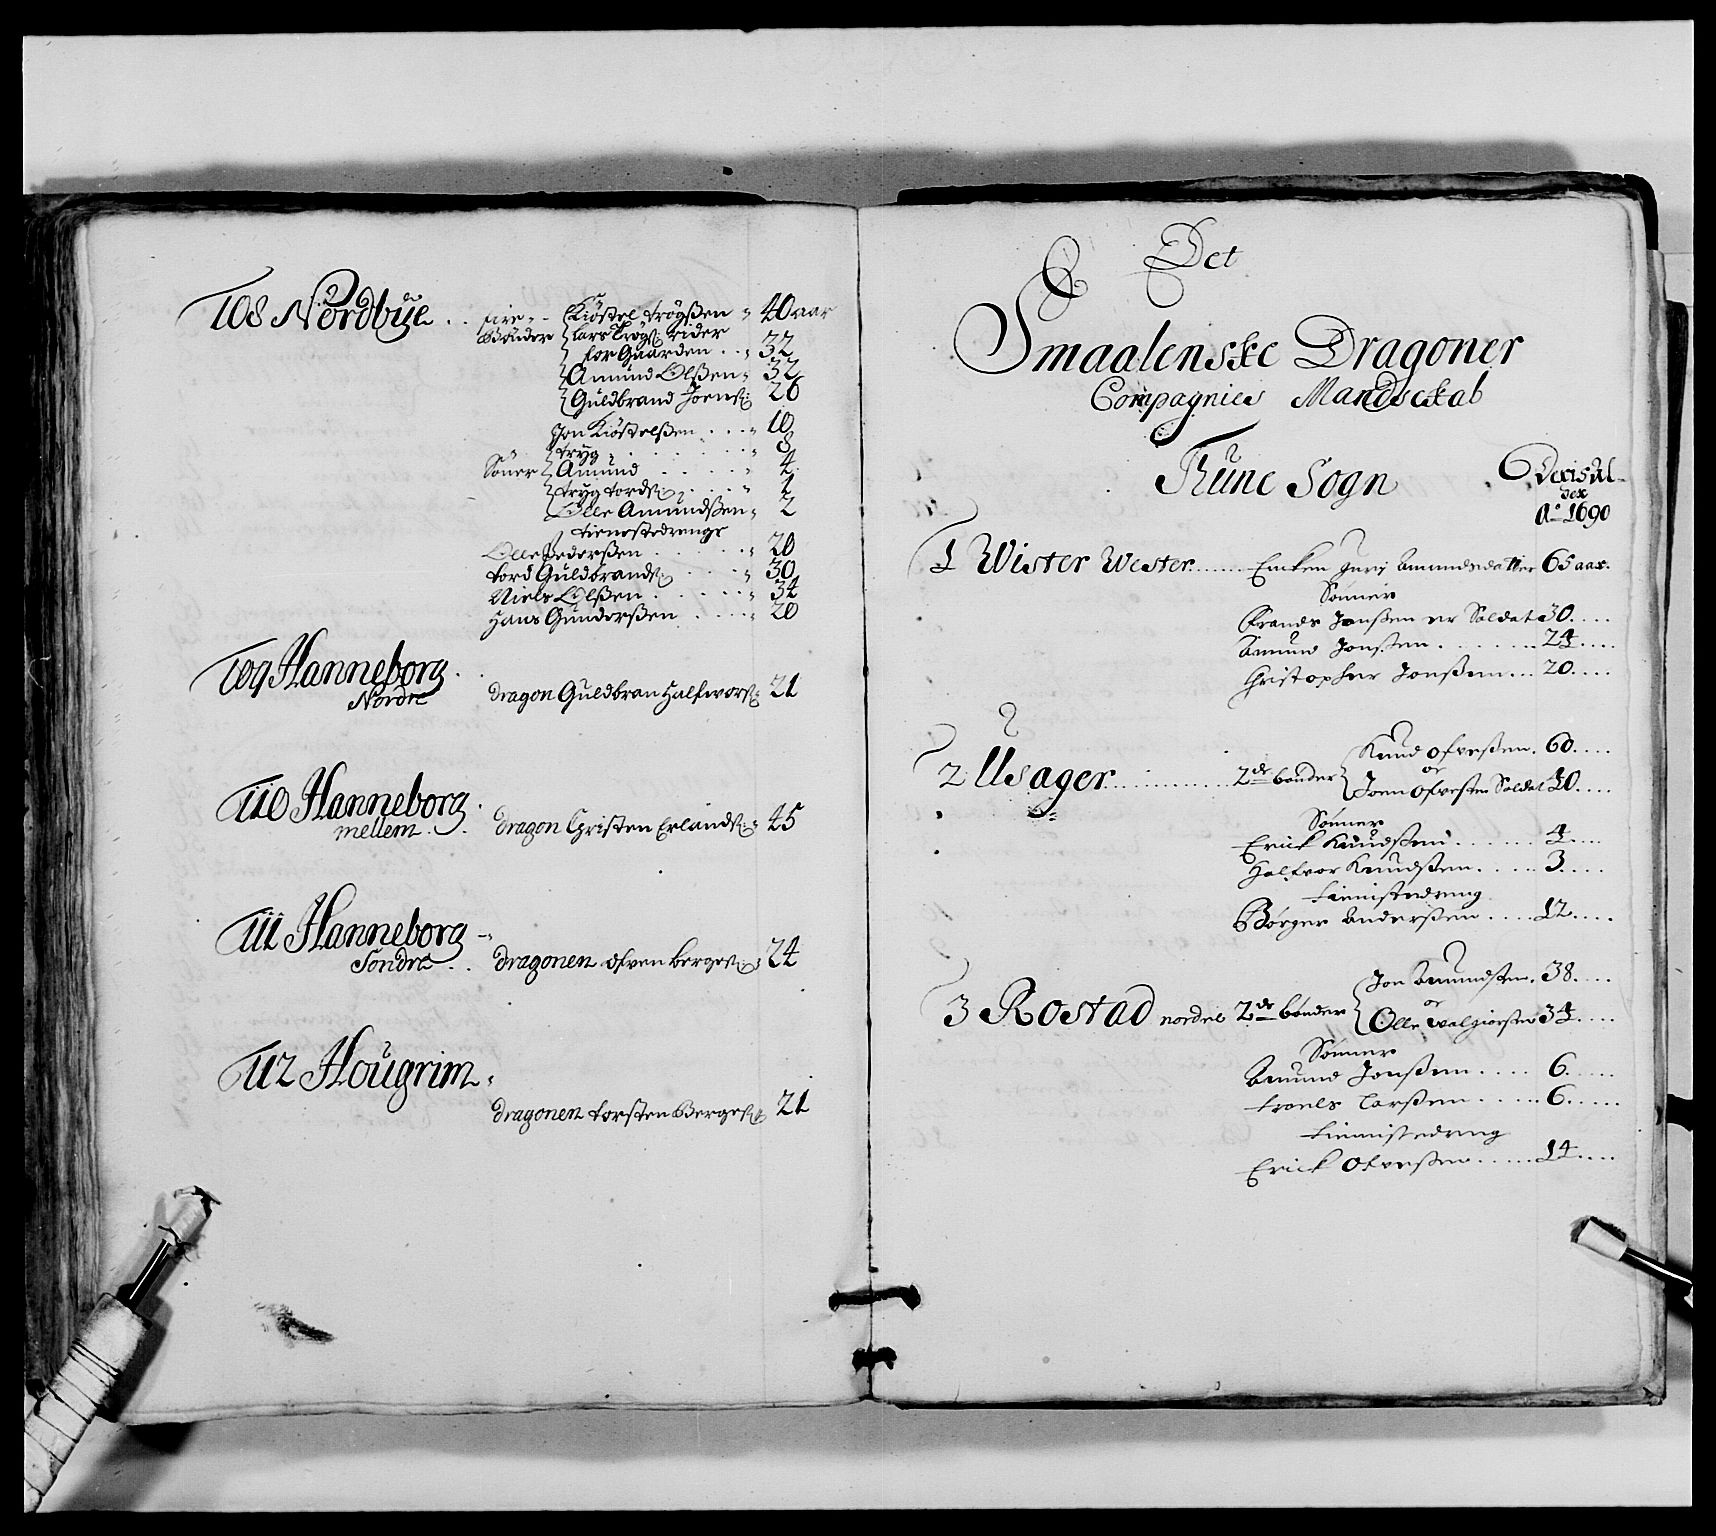 108 Nordbÿe . . fire - - Kiöstel trögßen " 40 aar
Bönder Lars Trögs: rider
for Gaarden . . " 32
Amund Olßen " 32
Guldbrand Joens: 26
Jon Kiöstelßen . . . " 10
tryg . . . . . . " 8
Söner Amund . . . . . " 4
tryg tords: . . . " 1
Olle Amundßen " 2
tienestedrenge
Olle Pederßen . . . . . " 20
tord Guldbrands: . . . " 30
Niels Olßen . . . . . " 34
Hans Gunderßen . . . . " 20
109 Hanneborg . .
Nordre dragon Guldbran Halfwors: 21
110 Hanneborg .
mellem . . dragon Christen Erlands: " 45
111 Hanneborg -
Sondre . . dragonen ofven berges: 24
112 Hougrim .
dragonen torsten Berges: 21
Det
Smaalenske Dragoner
Compagnies Mandsckab
Thune Sogn
Ao 1690
1 Wister Wester ..... Encken Guri Amundsdatter 65 aar.
Sönner
Frands Jonßen er Soldat 30....
Amund Jonßen ........ 24....
Christopher Jonßen ... 20....
2 Usager ............ 2de bönder Knud Ofveßen . 60....
or
Joen Ofvesten Soldat 30....
Sönner
Erick Knudßen ...... 4....
Halfvor Knudßen ..... 3....
tienistedreng
Börger Anderßen .... 12....
3 Rostad nordre 2de bönder Jon Amundsten . 38....
or
Olle 34....
Sönner
Amund Jonßen .... 6....
troels Larßen ..... 6....
tienistedreng
Erick Ofveßen ..... 14....